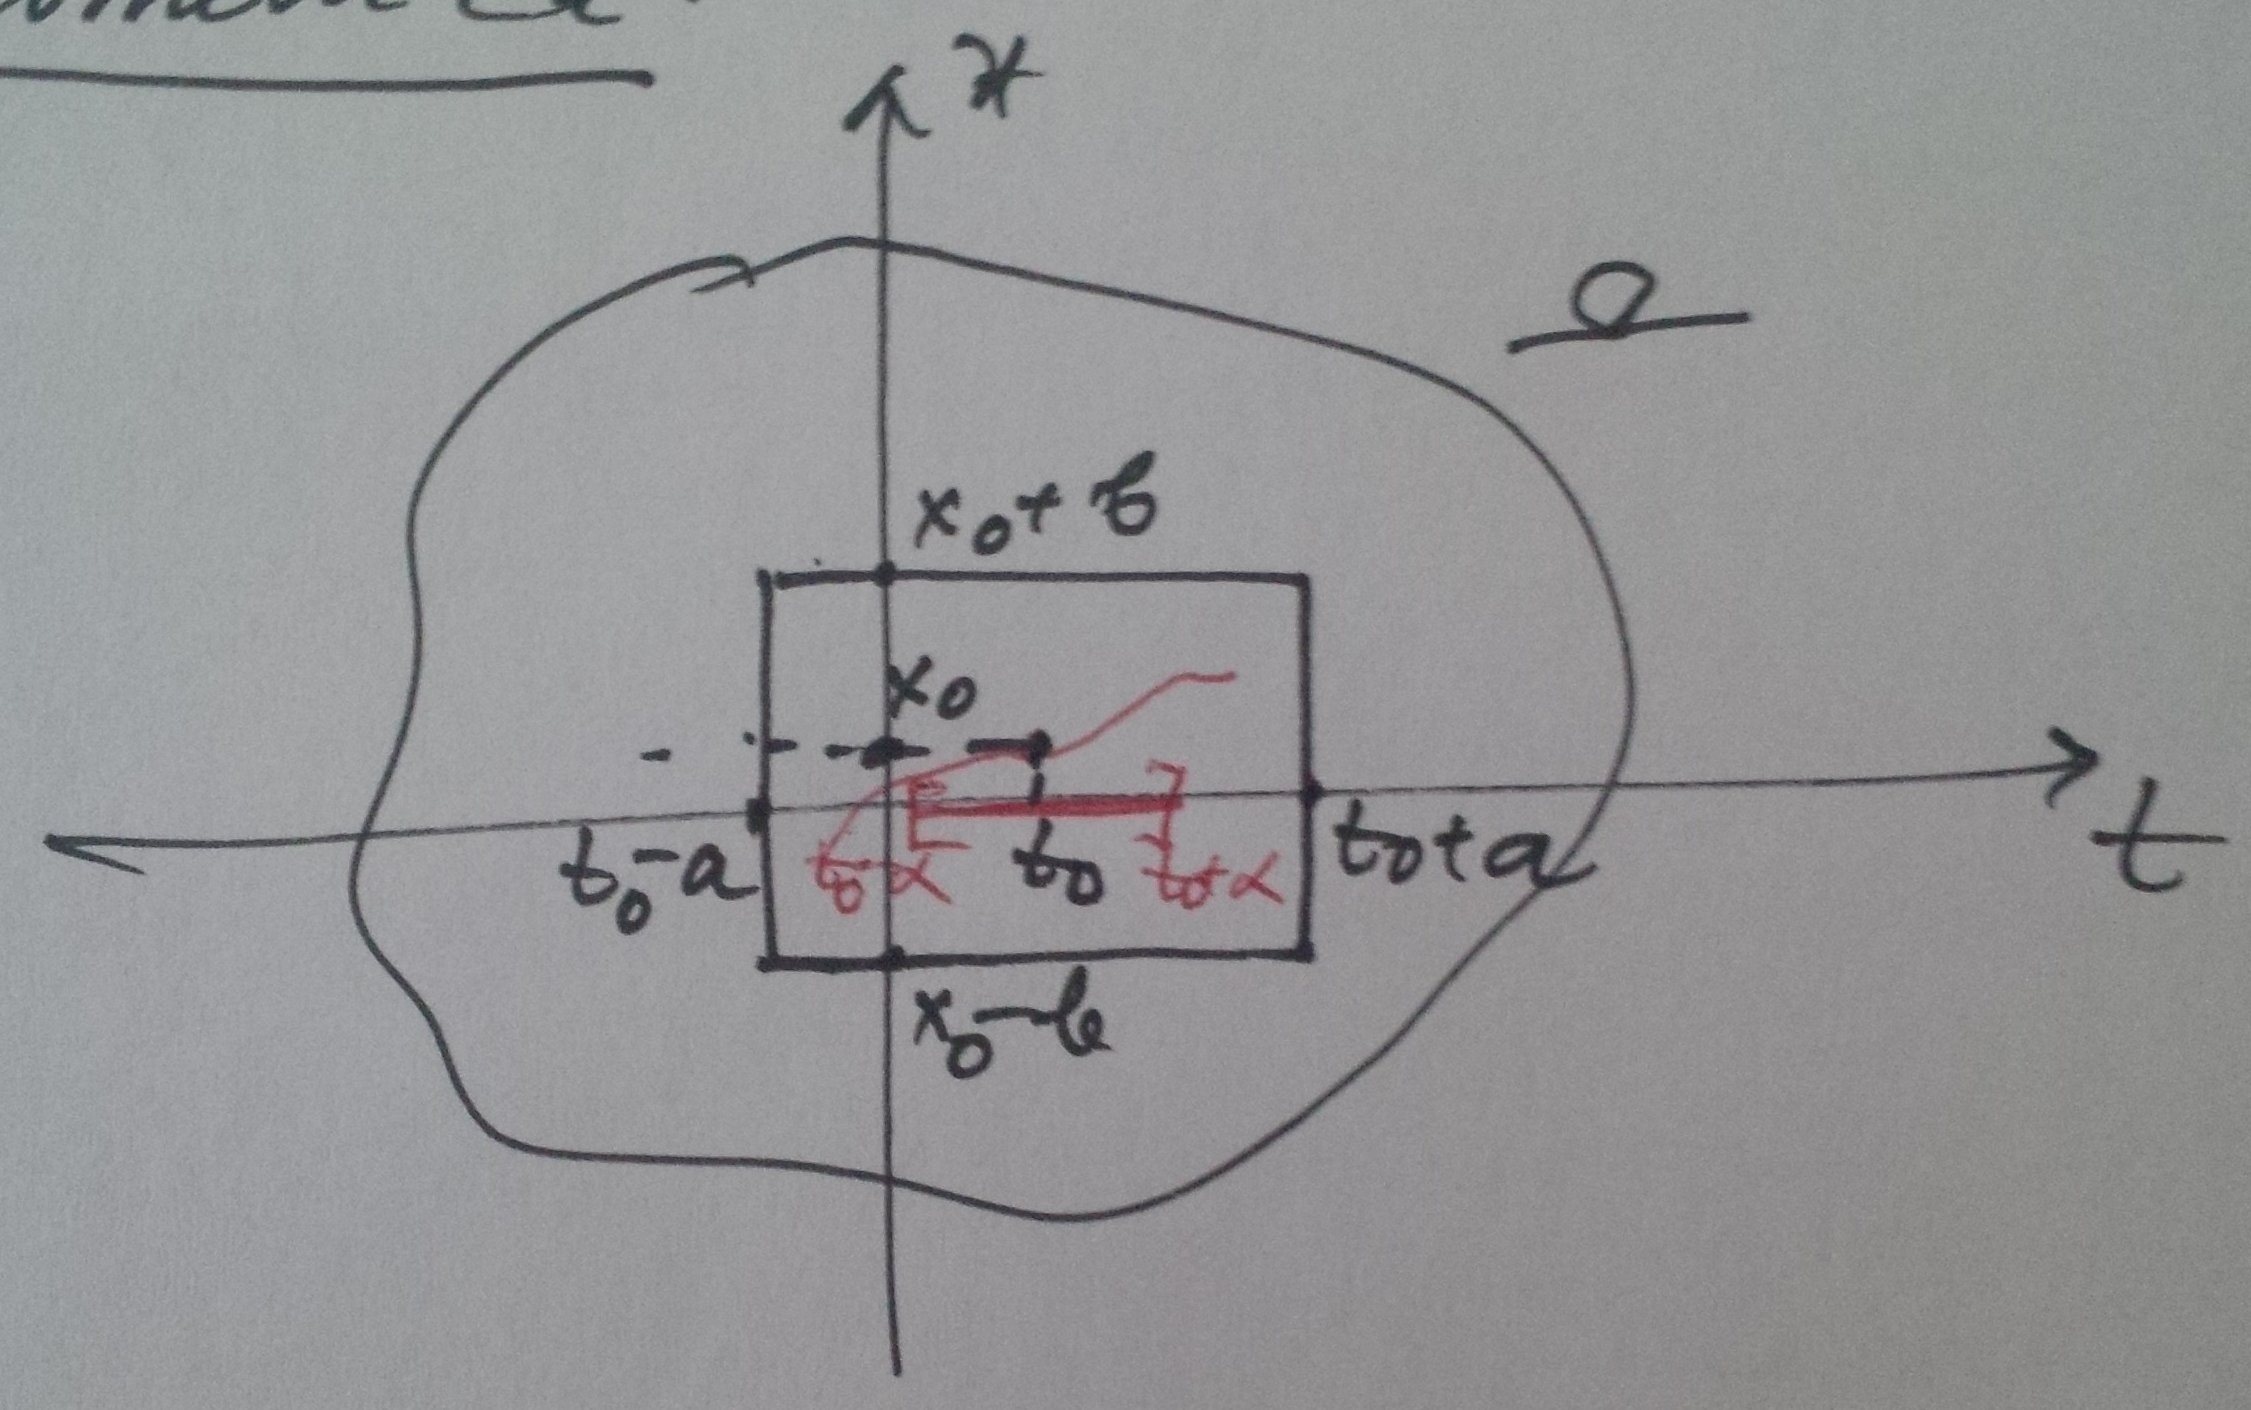 x
Ω
x₀+b
x₀
t₀-a
t₀-α
t₀
t₀+α
t₀+a
t
x₀-b